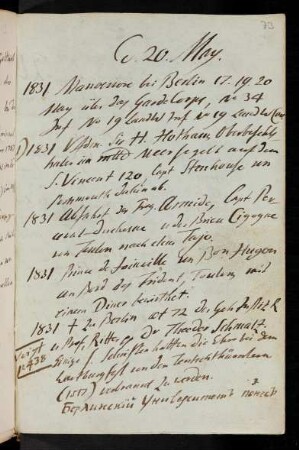 C. 20. May.
1831 Manoeuvre bei Berlin 17. 19 20
May über das Gardekorps, No 34
Inf No 19 Landw Inf No 19 Landw Cav
1831 VAdm. Sir H. Hotham Oberbefehls
haber im mttd Meer segelt auf dem
S. Vincent 120, Capt Senhouse von
Portsmouth
1831 Abfahrt der Freg. Armide, Capt Per
Ducherne u der Bricq Cigogne
von Toulon nach dem Tajo.
1831 Prinz de Joinville von Bon Hugon
an Bord des Trident, Toulon mit
einem Diner bewirthet.
1831 † zu Berlin aet 72 der Geh JustizR
u Prof. Ritter pp Dr Theodor Schmalz
Einige s. Schriften hatten die Ehre bei dem
Wartburgfest von den
(1817) verbrannt zu werden.
Verst
No 438